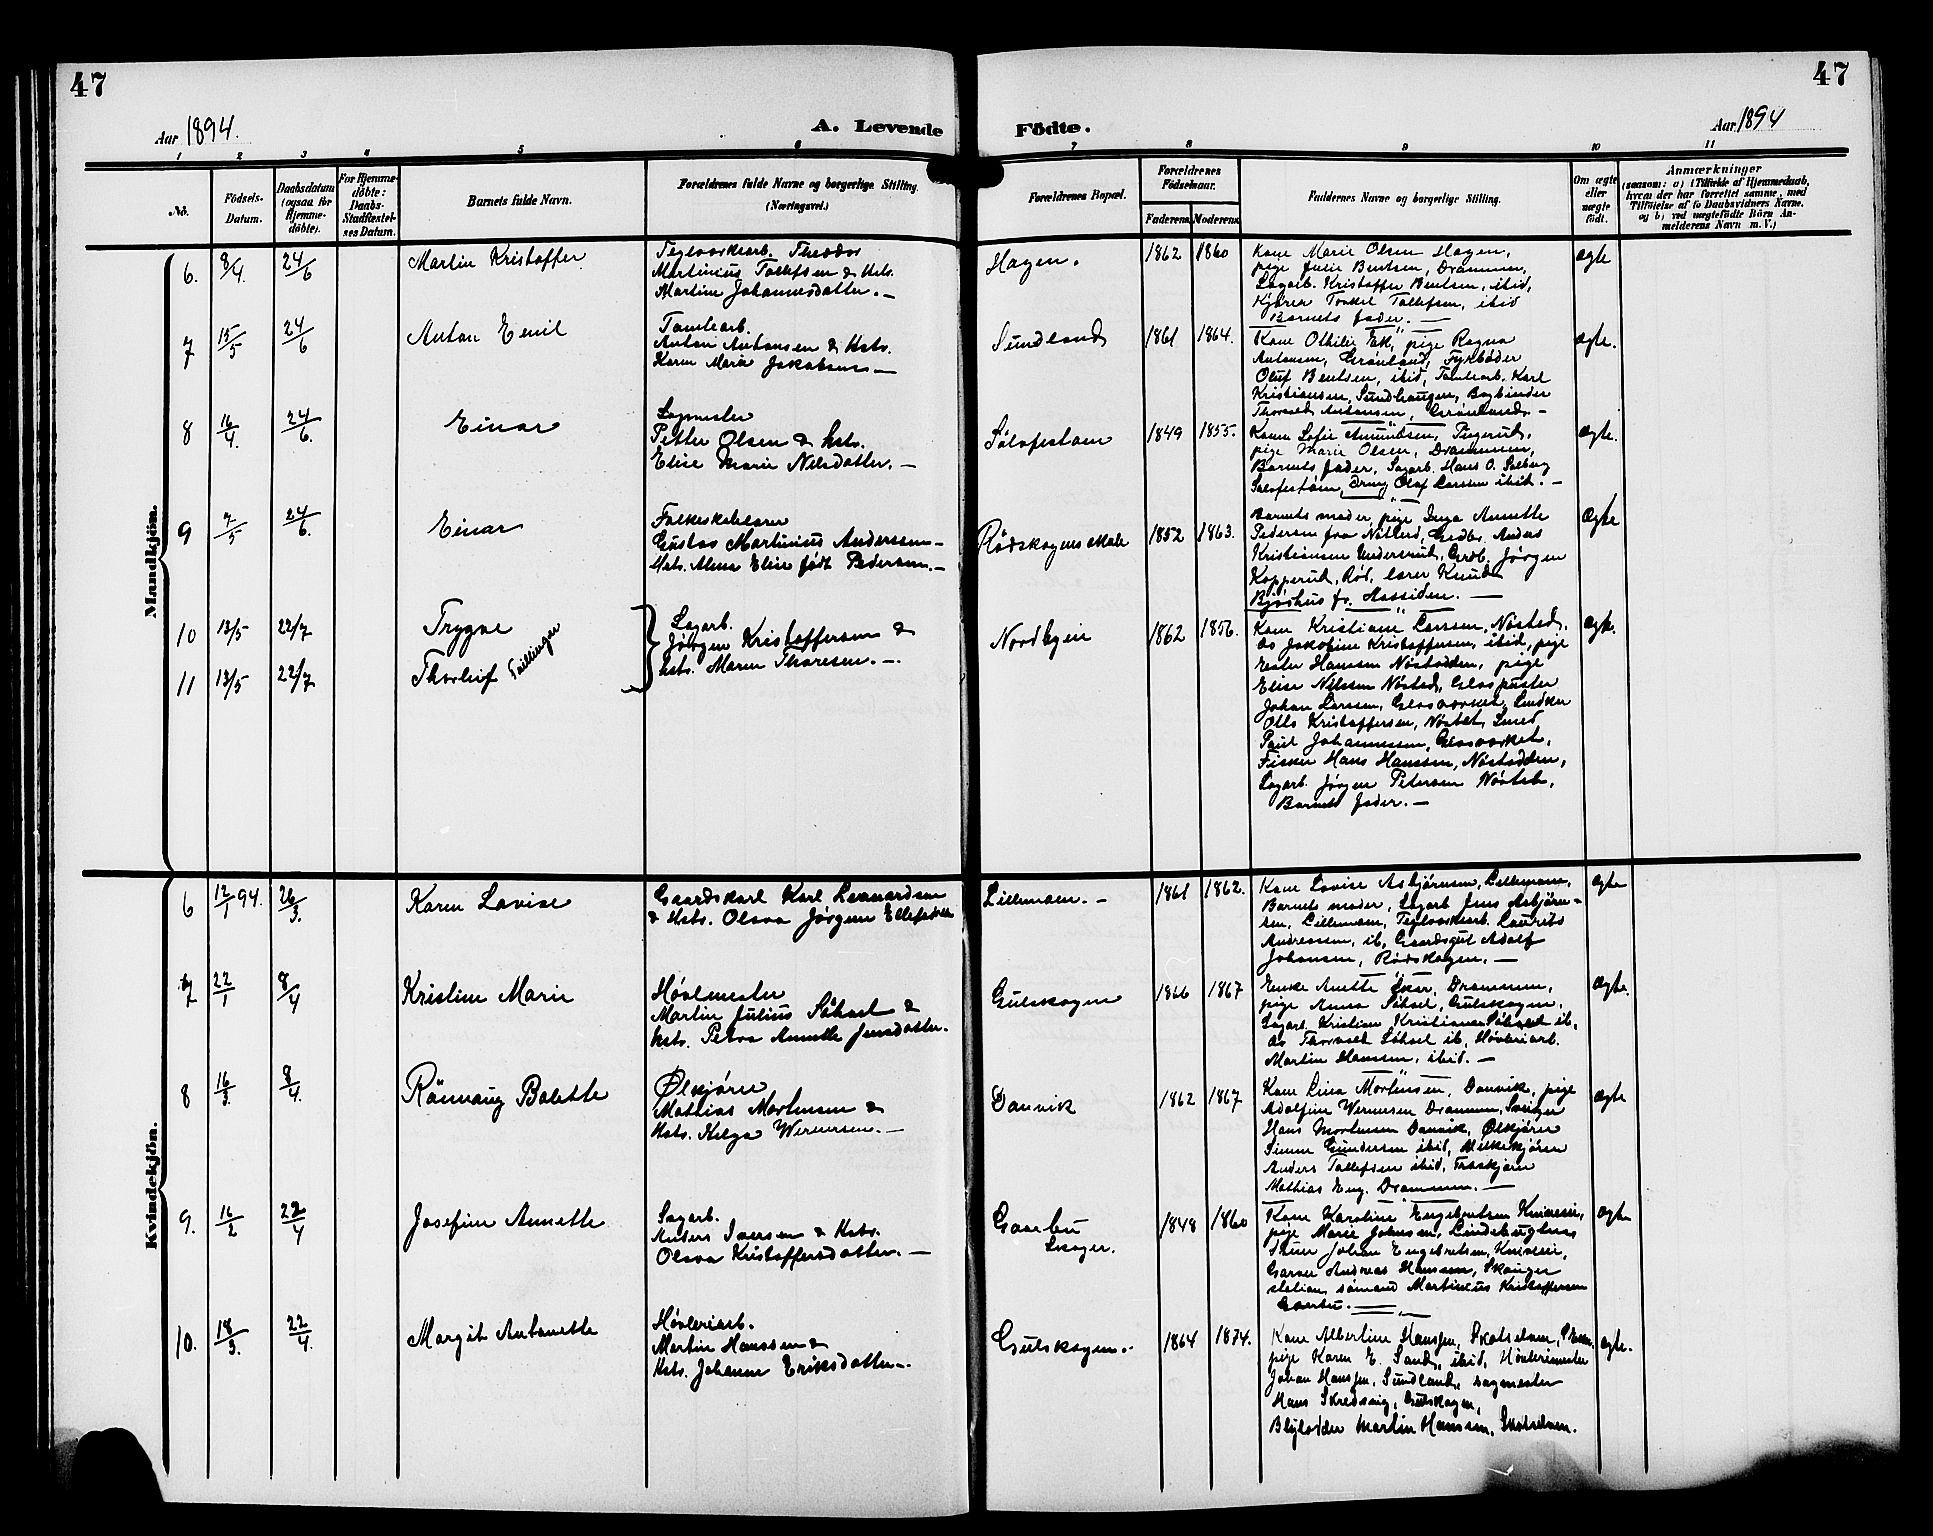 47
47
Aar 1894.
A. Levende
Födte.
Aar 1894
1 2 3 4 5 6 7 8 9 10 11
No.
Födsels-
Datum.
Daabsdatum
(ogsaa for
Hjemme-
döbte).
For Hjemme-
döbte:
Daabs-
Stadfæstel-
ses Datum.
Barnets fulde Navn.
Forældrenes fulde Navne og borgerlige Stilling.
(Næringsvei.)
Forældrenes Bopæl.
Forældrenes
Födselsaar.
Faderens. Moderens.
Faddernes Navne og borgerlig Stilling.
Om ægte
eller
uægte
født.
Anmærkninger
(saasom: a) i Tilfælde af Hjemmedaab,
hvem der har forrettet samme, med
Tilföielse af to Daabsvidners Navne.
og b) ved uægtefödte Börn An-
melderens Navn m. V.)
Mandkjön.
6. 8/4. 24/6 Martin Kristoffer
Teglværksarb. Theodor
Martinius Tollefsen & Hstr.
Martine Johannesdatter. —
Hagen. 1862 1860
Kone Marie Olsen Hagen,
pige Julie Bentsen, Drammen,
Sagarb. Kristoffer Bentsen, ibid,
Kjører Torkel Tollefsen, ibid
Barnets fader. —
ægte
7 15/5 24/6 Anton Emil
Tomtearb.
Anton Antonsen & Hstr.
Karen Marie Jakobsen —
Sundland 1861 1864.
Kone Othilie Fak, pige Ragna
Antonsen, Grønland, Fyrbøder
Oluf Bentsen, ibid, Tomtearb. Karl
Kristiansen, Sundhaugen, Bogbinder
Thorvald Antonsen, Grønland. —
ægte.
8 16/4. 24/6. Einar
Sagmester
Petter Olsen & hstr.
Elise Marie Nilsdatter. —
Sølvfestøen 1849 1855.
Kone Sofie Amundsen,
pige Marie Olsen, Drammen,
Barnets fader, Sagarb. Hans O. Solberg
Sølvfestøen, Dreng Olaf Larsen ibid. —
ægte.
9 7/5 24/6. Einar
Folkeskolelærer
Gustav Martinius Anderssen —
Hstr. Alma Elise født Pedersen. —
Rødskogens skole 1852 1863.
Barnets moder, pige Inga Annette
Pedersen fra Nøtterø, Grdbr. Anders
Kristiansen Underverud, Grdb. Jørgen
Kopperud, Rød, lærer Knud
Bjøshus fr. Aassiden. —
Ægte
10 13/5 22/7 Trygve
11 13/5 22/7 Thorleif
Tvillinger
Sagarb.
Jørgen Kristoffersen &
hstr. Maren Thoresen. —
Nordbyen 1862 1856.
Kone Kristiane Larsen, Nøsted,
do Jakobine Kristoffersen, ibid, pige
Ester Hanssen Nøstodden, pige
Elise Nilssen Nøsted, Glaspuster
Johan Larssen, Glasværket,
Olls Kristoffersen, Nøsted, Smed
Paul Johannessen, Glasværket,
Fisker Hans Hanssen, Nøstodden,
Sagarb. Jørgen Petersen Nøsted,
Barnets fader. —
ægte.
Kvindekjön.
6 12/1 94. 26/3. Karen Lovise
Gaardskarl Karl Leonardsen
& Hstr. Olava Jørgine Ellefsdatter
Lillemoen. — 1861 1862.
Kone Lovise Asbjørnsen, Lillemoen,
Barnets moder, Sagarb Jens Asbjørn-
sen, Lillemoen, Teglværksarb. Laurits
Andreassen, ib, Gaardsgut Adolf
Johansen, Rødskogen. —
ægte
7 22/1 8/4 Kristine Marie
Høvlmester
Martin Julius Solid &
hstr. Petra Annette Jensdatter.
Gulskogen 1866 1867
Enke Anette Drammen,
pige Anna Gulskogen,
Sagarb. Kristian Kristiansen ib,
do Thorvald ib, Høvleriarb.
Martin Hanssen, ibid. —
Ægte.
8 16/3. 8/4. Rönnaug Bolette
Ølkjører
Mathias Mortensen &
Hstr. Helga Wernersen. —
Danvik 1862 1867
Kone Lina Mortensen, Danvik, pige
Adolfine Wernersen Drammen,
Hans Mortensen Danvik, Ølkjører
Simen Gundersen ibid, Melkekjører
Anders Tollefsen ibid, Traskjører
Mathias Eng. Drammen. —
ægte
9. 16/2 22/4 Josefine Annette
Sagarb.
Anders Iversen & Hstr.
Olava Kristoffersdatter. —
Gaarbu
Skoger. 1848 1860
Kone Karoline Engebretsen Kniveir,
pige Marie Johnsen,
Johan Engebretsen, Kniveir,
Garver Andreas Hanssen, Skouger
station, sømand Martinius Kristoffersen
Gaarbu. —
ægte
10. 18/3. 22/4. Margit Antonette
Høvleriarb.
Martin Hanssen &
Hstr. Johanne Eriksdatter —
Gulskogen. 1864 1874.
Kone Albertine Hanssen, Skotselven,
pige Karen E. Sand, ibid, Høvlerimester
Johan Hanssen, Sundland, sagmester
Hans Skredsvig, Gulskogen,
Martin Hanssen, Skotselven.
ægte.